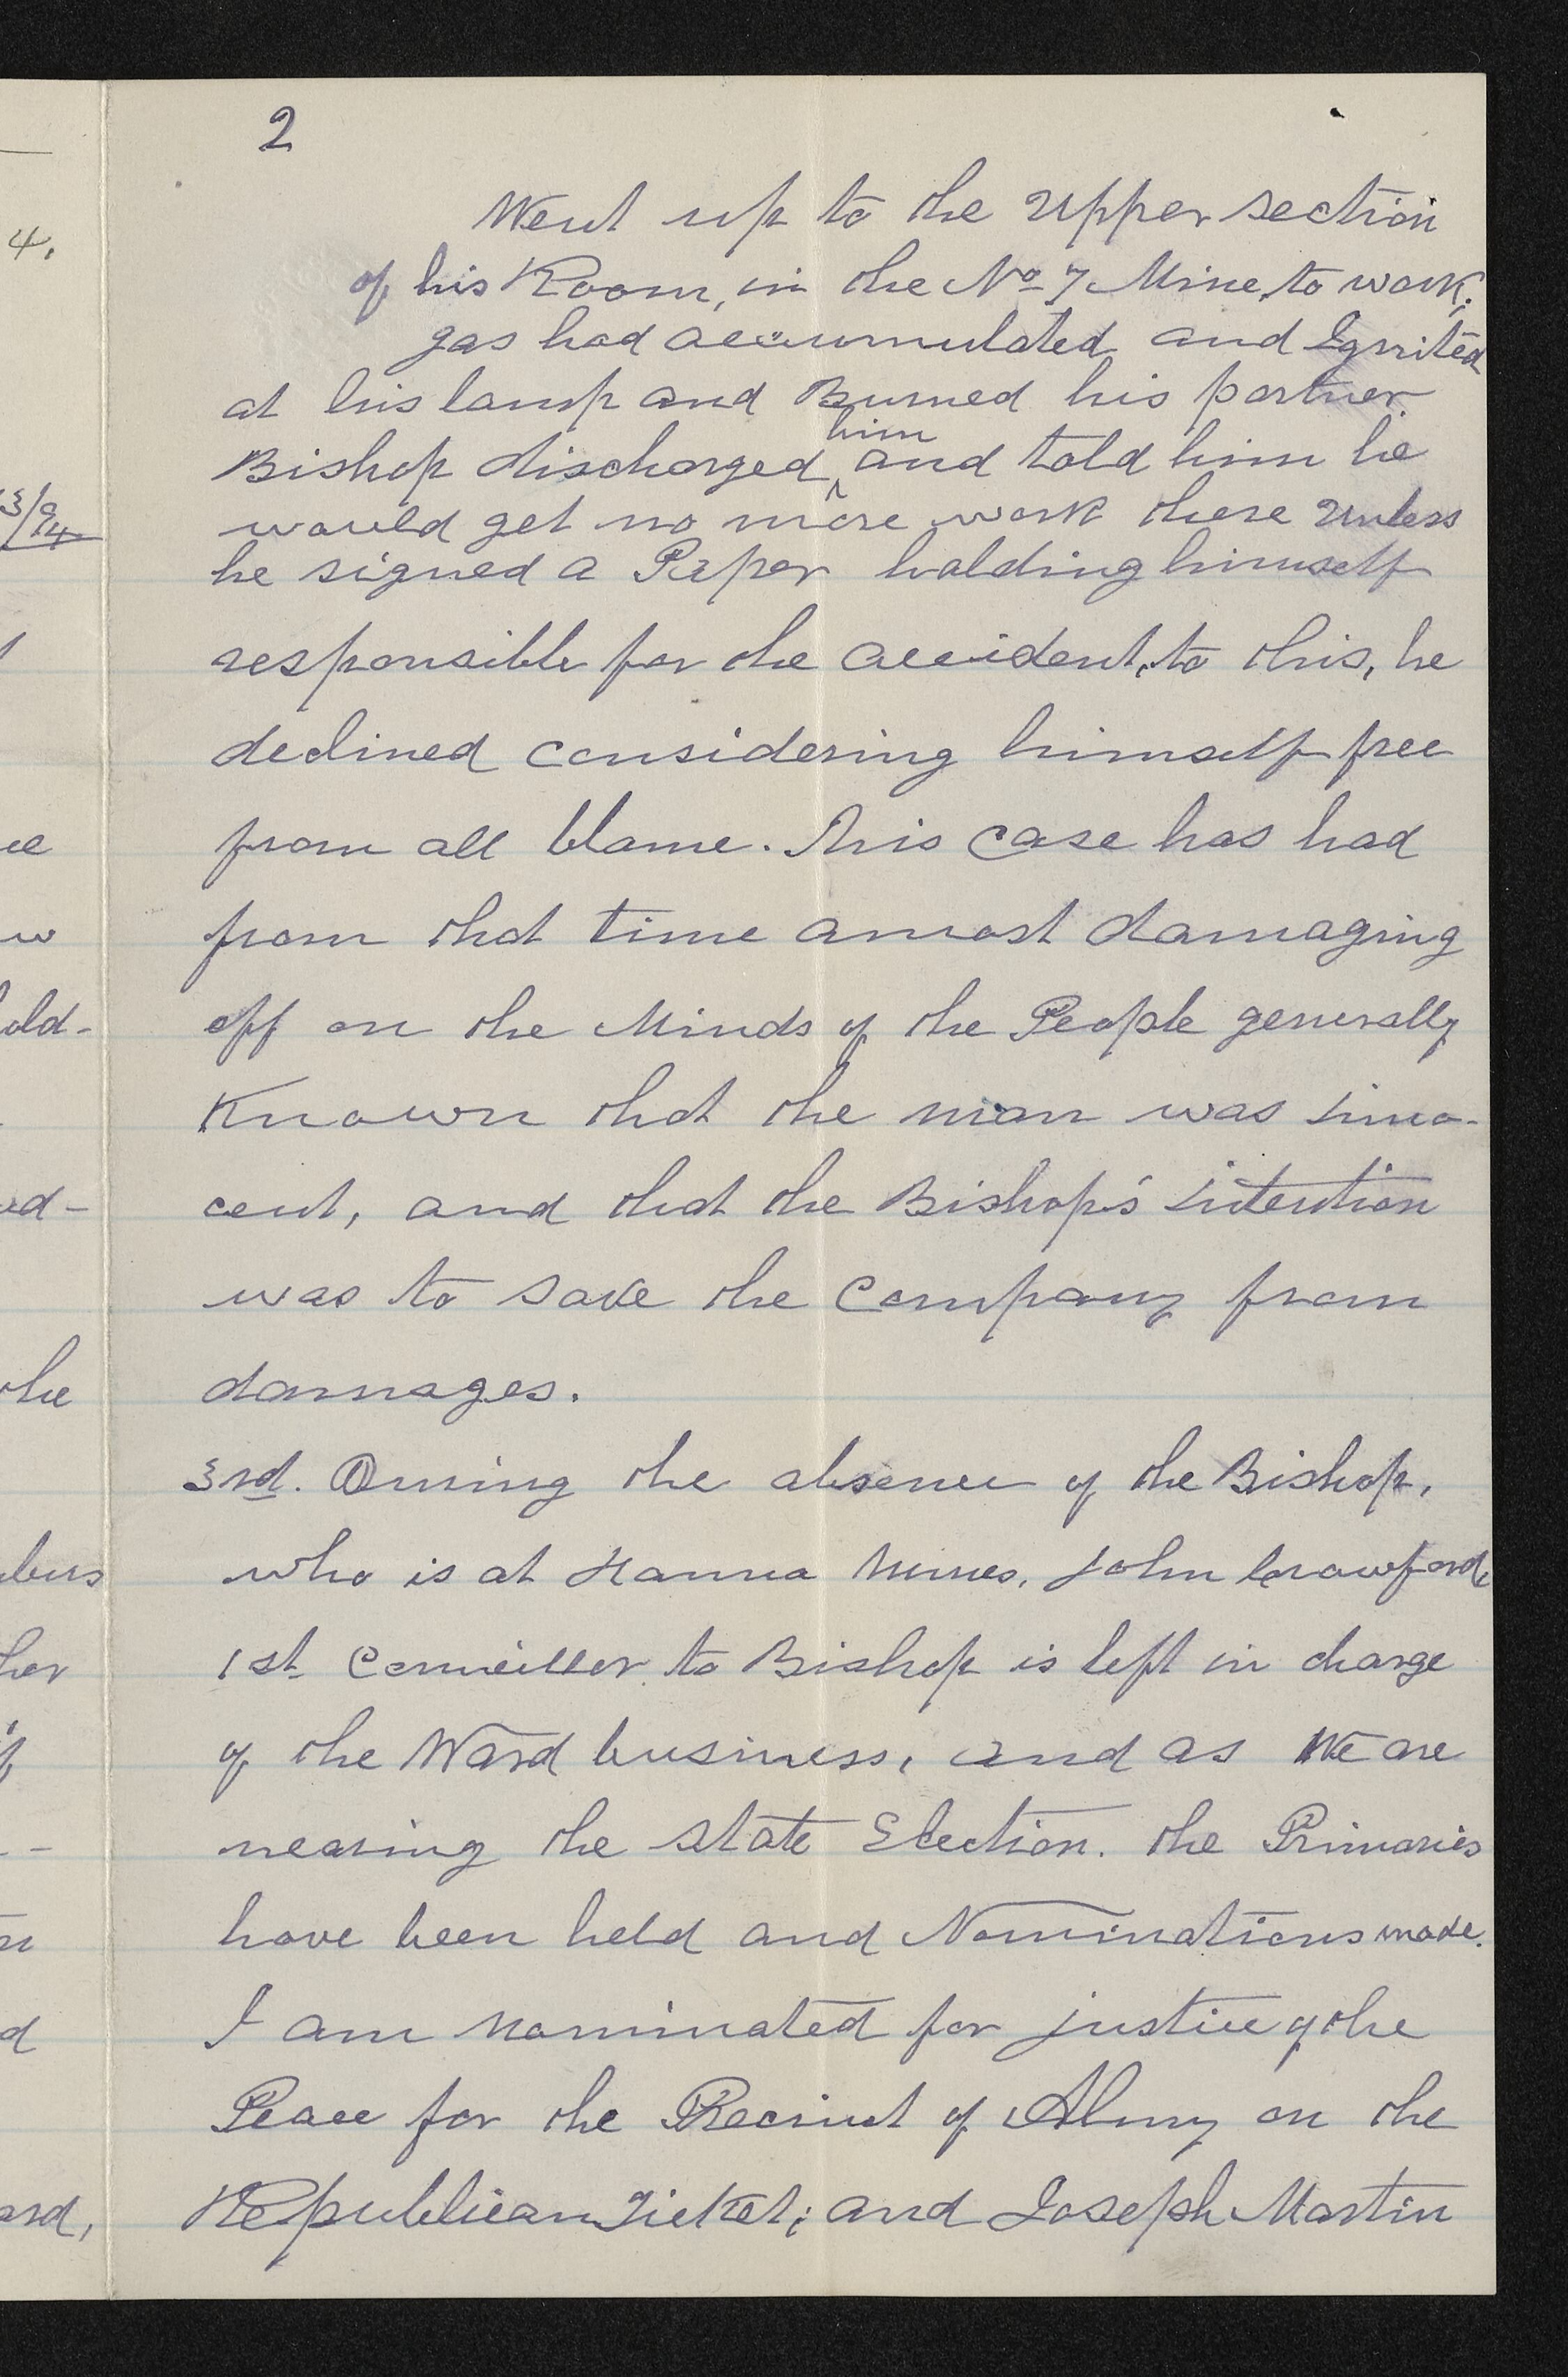 2
Went up to the Upper section
of his Room, in the No 7 Mine, to work;
gas had accumulated and Ignited
at his lamp and Burned his partner.
him
Bishop discharged ^ and told him he
would get no more work there unless
he signed a Paper holding himself
responsible for the accident, to this, he
declined considering himself free
from all blame. This case has had
from that time a most damaging
eff on the Minds of the People generally
Known that the man was inno-
cent, and that the Bishop's intention
was to save the Company from
damages.
3rd. During the absence of the Bishop,
who is at Hanna Mines, John Crawford,
1st Counciller to Bishop is left in charge
of the Ward business, and as We are
nearing the State Election. the Primaries
have been held and Nominations made.
I am nominated for justice of the
Peace for the Precinct of Almy on the
Republican Ticket; and Joseph Martin
4.
old-
ed-
the
bers
her
ard,